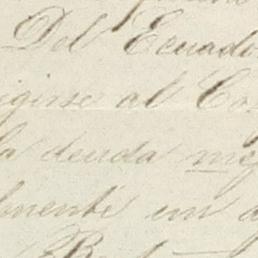 Del Ecuado
igirse al Co
la deuda
lmente en